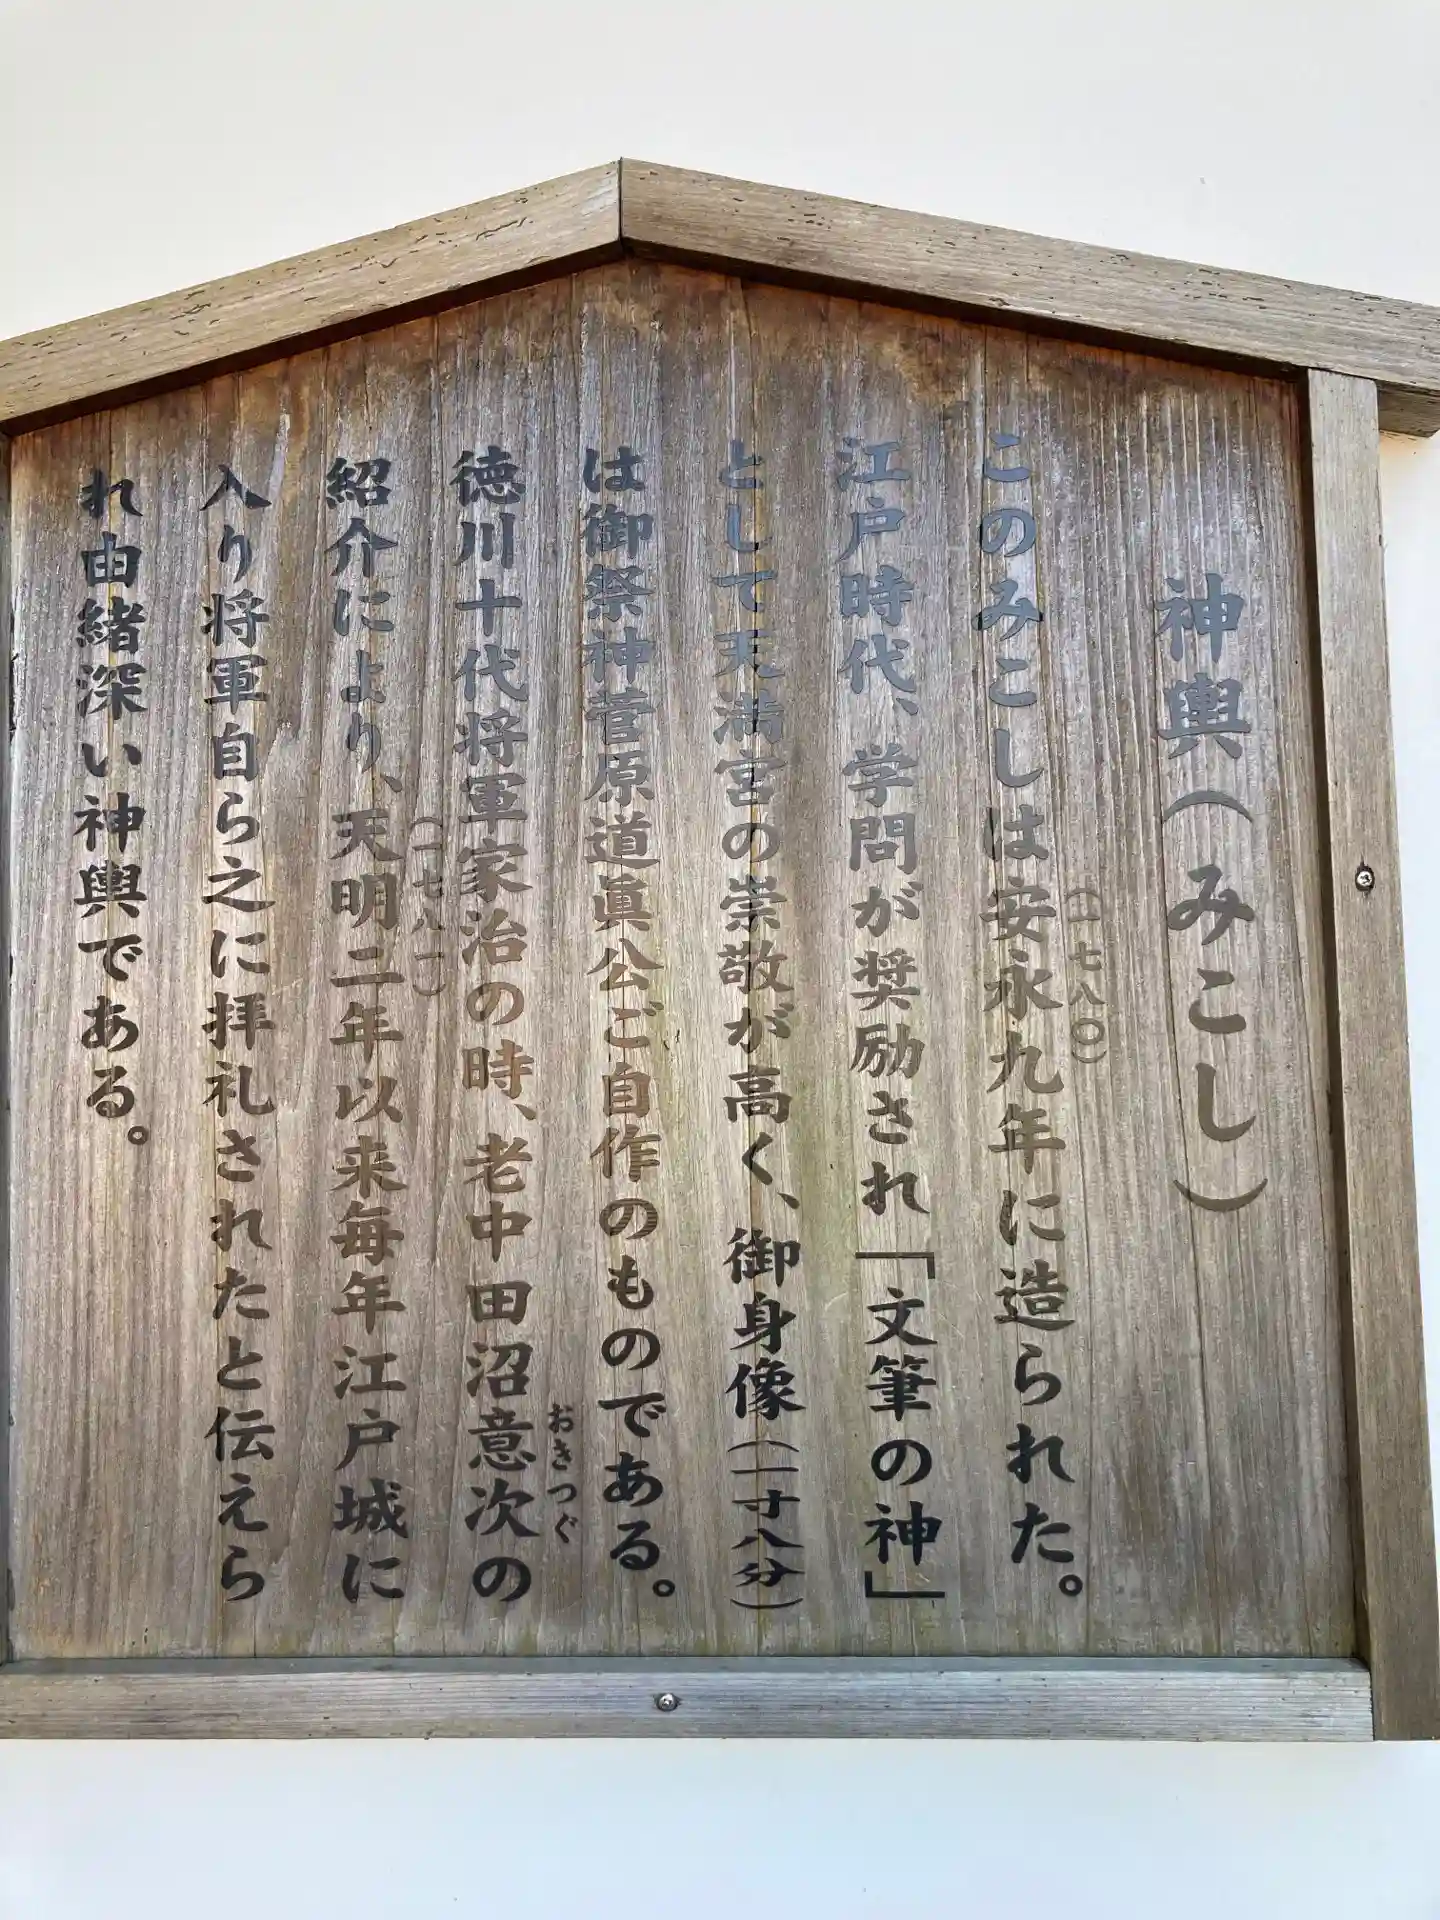 神輿(みこし)
このみこしは安永九年(一七八〇)に造られた。
江戸時代、学問が奨励され「文筆の神」
として天満宮の崇敬が高く、御身像(一寸八分)
は御祭神菅原道眞公ご自作のものである。
徳川十代将軍家治の時、老中田沼意次(おきつぐ)の
紹介により、天明二年(一七八二)以来毎年江戸城に
入り将軍自ら之に拝礼されたと伝えら
れ由緒深い神輿である。